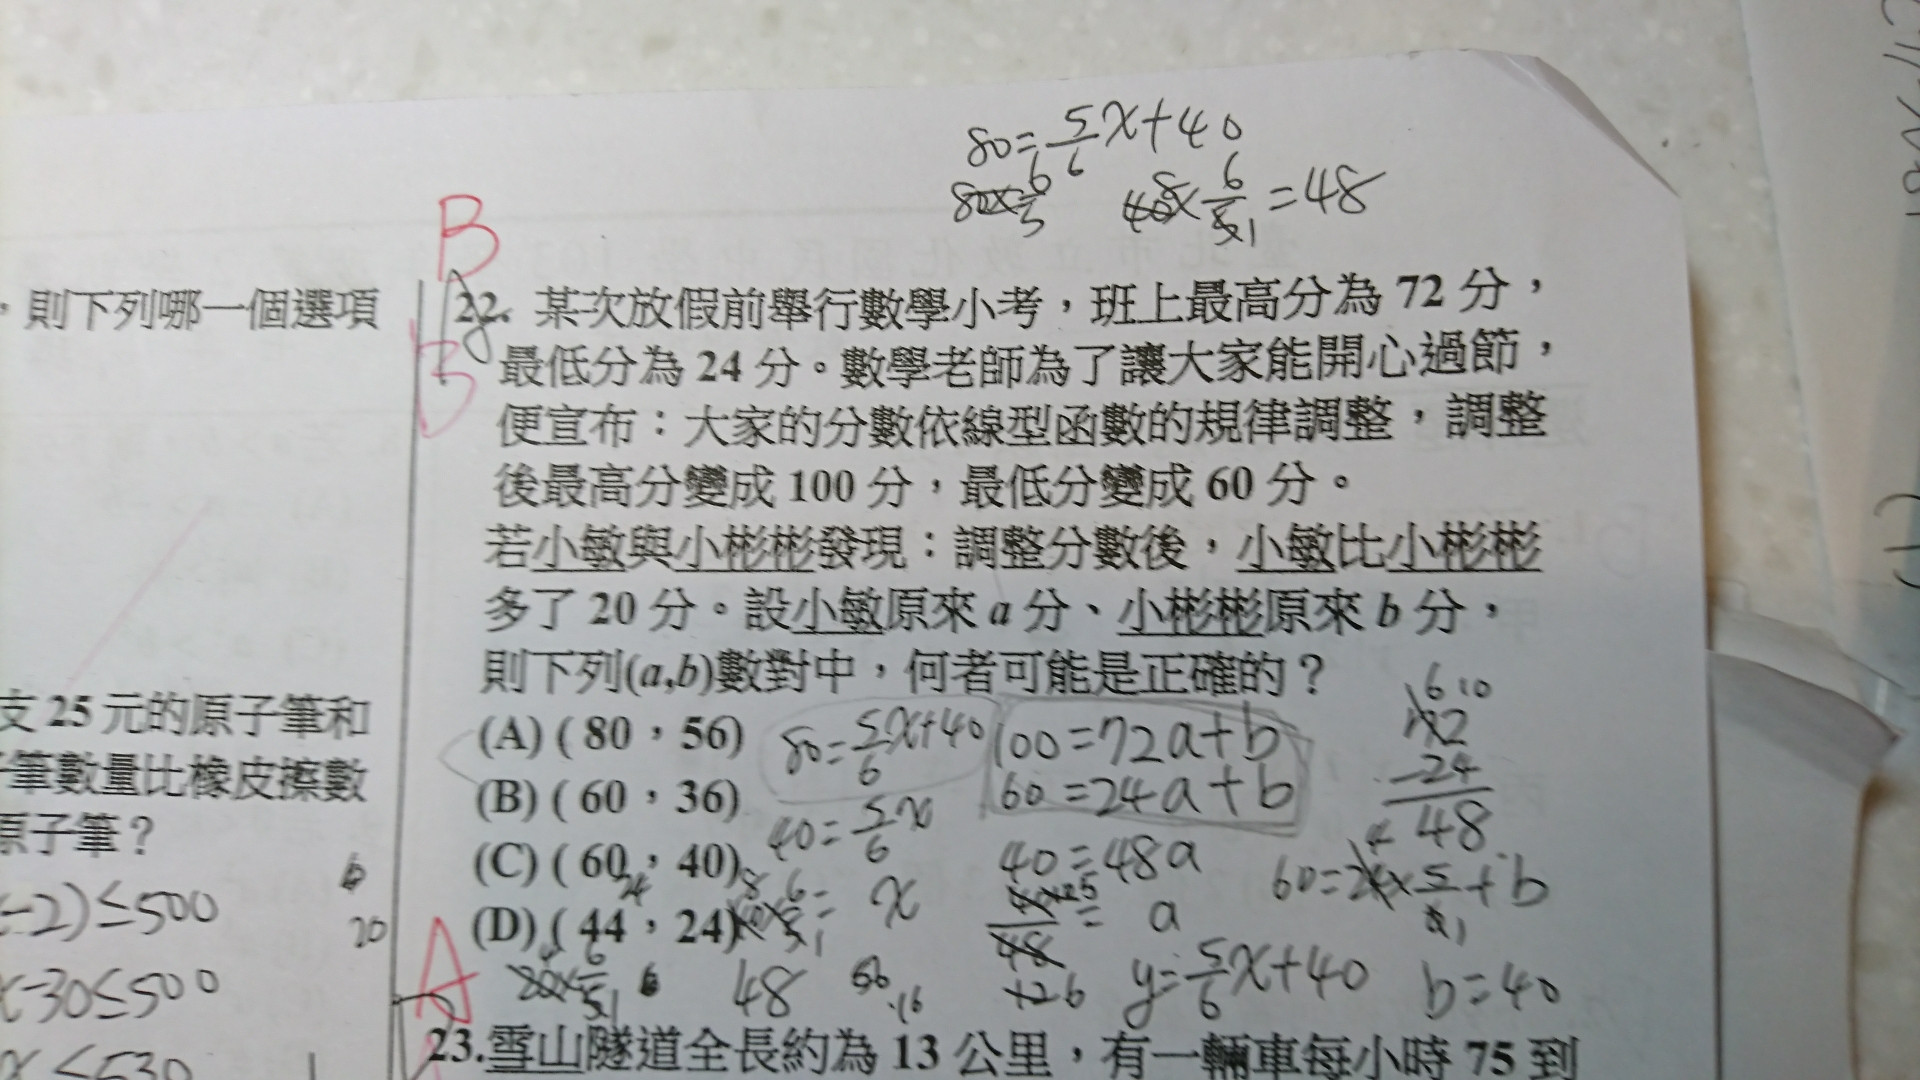 80=5/6x+40
80×6/5 40×6/5=48
B
，則下列哪一個選項
22. 某次放假前舉行數學小考，班上最高分為 72 分，
B
最低分為 24 分。數學老師為了讓大家能開心過節，
便宣布：大家的分數依線型函數的規律調整，調整
後最高分變成 100 分，最低分變成 60 分。
若小敏與小彬彬發現：調整分數後，小敏比小彬彬
多了 20 分。設小敏原來 a 分、小彬彬原來 b 分，
則下列(a,b)數對中，何者可能是正確的？
(A) ( 80，56) 80=5/6x+40 100=72a+b
(B) ( 60，36) 60=24a+b
40=5/6x
(C) ( 60，40) 40=48a
(D) ( 44，24)
72
-24
48
60=24×5/6+b
x
a
48
y=5/6x+40 b=40
支 25 元的原子筆和
筆數量比橡皮擦數
原子筆？
-2)≤500
20
x-30≤500
x≤530
A
23.雪山隧道全長約為 13 公里，有一輛車每小時 75 到